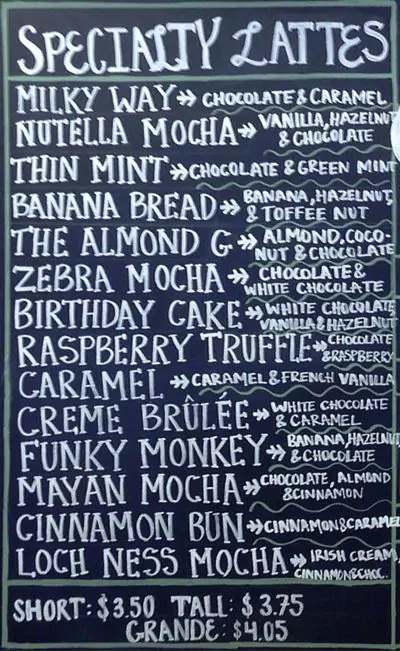 SPECIALTY LATTES
MILKY WAY → CHOCOLATE & CARAMEL
NUTELLA MOCHA → VANILLA, HAZELNUT
& CHOCOLATE
THIN MINT → CHOCOLATE & GREEN MINT
BANANA BREAD → BANANA, HAZELNUT,
& TOFFEE NUT
THE ALMOND G → ALMOND, COCO-
NUT & CHOCOLATE
ZEBRA MOCHA → CHOCOLATE &
WHITE CHOCOLATE
BIRTHDAY CAKE → WHITE CHOCOLATE
VANILLA & HAZELNUT
RASPBERRY TRUFFLE → CHOCOLATE
& RASPBERRY
CARAMEL → CARAMEL & FRENCH VANILLA
CREME BRÛLÉE → WHITE CHOCOLATE
& CARAMEL
FUNKY MONKEY → BANANA, HAZELNUT
& CHOCOLATE
MAYAN MOCHA → CHOCOLATE, ALMOND
& CINNAMON
CINNAMON BUN → CINNAMON & CARAMEL
LOCH NESS MOCHA → IRISH CREAM,
CINNAMON & CHOC.
SHORT: $3.50 TALL: $3.75
GRANDE: $4.05